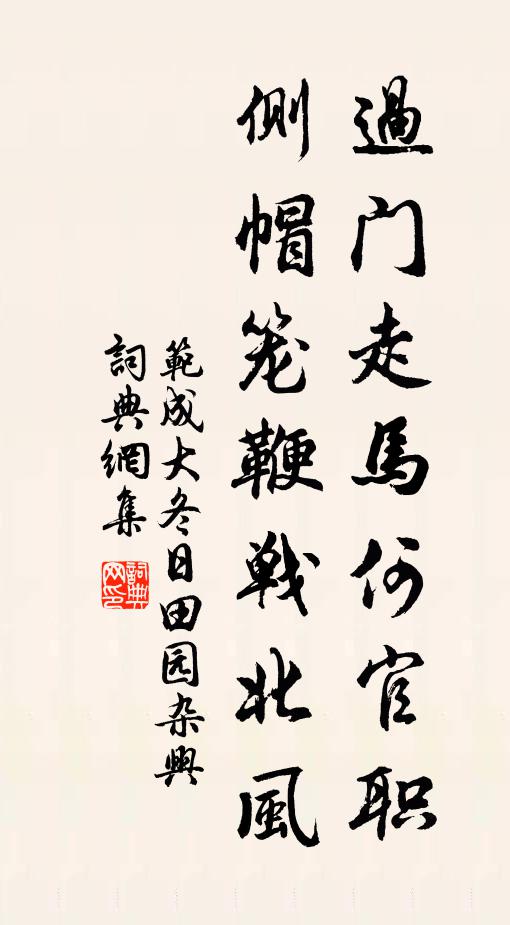 過门走馬何官职
側帽笼鞭戦北風
範成大冬日田园杂興
詞典網集
詞典网印